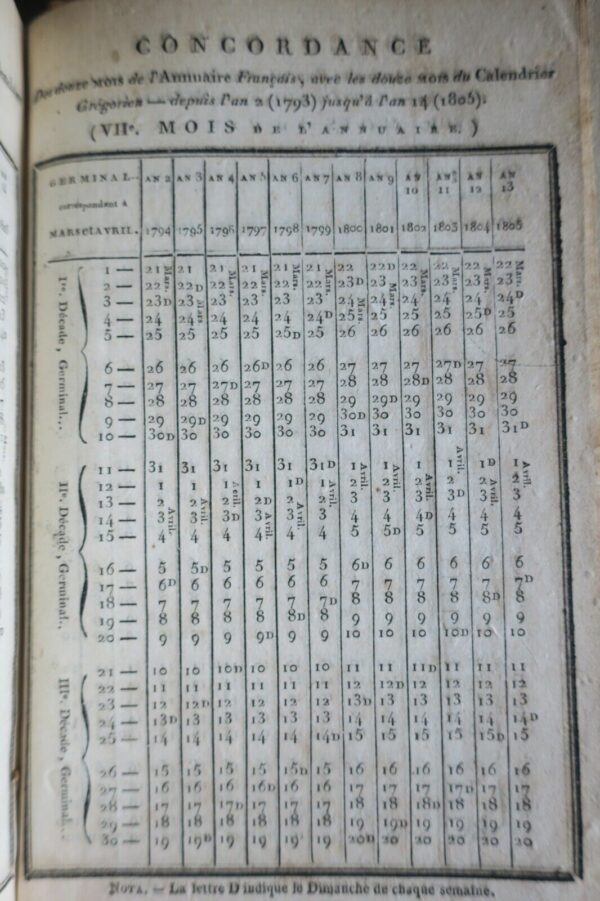 CONCORDANCE
Des douze MOIS de l'Annuaire Français, avec les douze mois du Calendrier
Grégorien — depuis l'an 2 (1793) jusqu'à l'an 14 (1805).
(VIIe. MOIS DE L'ANNUAIRE.)
GERMINAL.. AN 2 AN 3 AN 4 AN 5 AN 6 AN 7 AN 8 AN 9 AN 10 AN 11 AN 12 AN 13
correspondent à
MARS et AVRIL. 1794 1795 1796 1797 1798 1799 1800 1801 1802 1803 1804 1805
Ire. Décade, Germinal...
1 — 21 21 21 21 21 21 22 22D 22 22 22 22
Mars. Mars Mars. Mars. Mars. Mars. Mars. Mars. Mars. Mars. Mars. Mars.
2 — 22 22D 22 22 22 22 23D 23 23 23 23 23
3 — 23D 23 23 23 23 23 24 24 24 24 24 24D
4 — 24 24 24 24 24 24D 25 25 25 25 25D 25
5 — 25 25 25 25 25D 25 26 26 26 26 26 26
6 — 26 26 26 26D 26 26 27 27 27 27D 27 27
7 — 27 27 27D 27 27 27 28 28 28D 28 28 28
8 — 28 28 28 28 28 28 29 29D 29 29 29 29
9 — 29 29D 29 29 29 29 30D 30 30 30 30 30
10 — 30D 30 30 30 30 30 31 31 31 31 31 31D
IIe. Décade, Germinal..
11 — 31 31 31 31 31 31D 1 1 1 1 1D 1
Avril. Avril. Avril. Avril. Avril. Avril. Avril. Avril. Avril. Avril. Avril. Avril.
12 — 1 1 1 1 1D 1 2 2 2 2 2 2
13 — 2 2 2 2D 2 2 3 3 3 3D 3 3
14 — 3 3 3D 3 3 3 4 4 4D 4 4 4
15 — 4 4 4 4 4 4 5 5D 5 5 5 5
16 — 5 5D 5 5 5 5 6D 6 6 6 6 6
17 — 6D 6 6 6 6 6 7 7 7 7 7 7D
18 — 7 7 7 7 7 7D 8 8 8 8 8D 8
19 — 8 8 8 8 8D 8 9 9 9 9 9 9
20 — 9 9 9 9D 9 9 10 10 10 10D 10 10
IIIe. Décade, Germinal..
21 — 10 10 10D 10 10 10 11 11 11D 11 11 11
22 — 11 11 11 11 11 11 12 12D 12 12 12 12
23 — 12 12D 12 12 12 12 13D 13 13 13 13 13
24 — 13D 13 13 13 13 13 14 14 14 14 14 14D
25 — 14 14 14 14 14 14D 15 15 15 15 15D 15
26 — 15 15 15 15 15D 15 16 16 16 16 16 16
27 — 16 16 16 16D 16 16 17 17 17 17D 17 17
28 — 17 17 17D 17 17 17 18 18 18D 18 18 18
29 — 18 18 18 18 18 18 19 19D 19 19 19 19
30 — 19 19D 19 19 19 19 20D 20 20 20 20 20
NOTA. — La lettre D indique le Dimanche de chaque semaine.